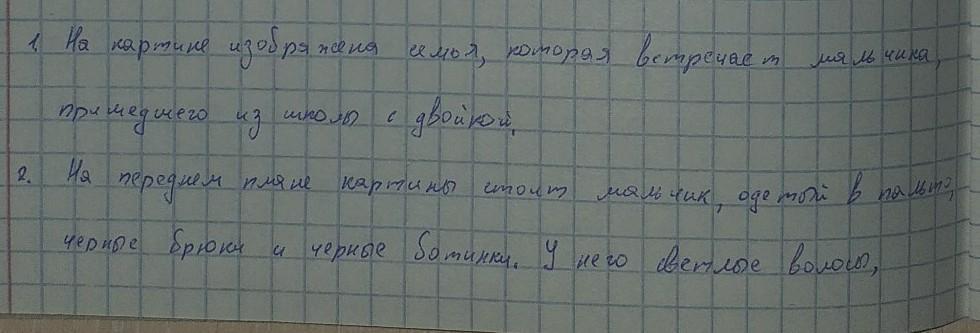 1. На картине изображена семья, которая встречает мальчика,
пришедшего из школы с двойкой.
2. На переднем плане картины стоит мальчик, одетый в пальто,
черные брюки и черные ботинки. У него светлые волосы,